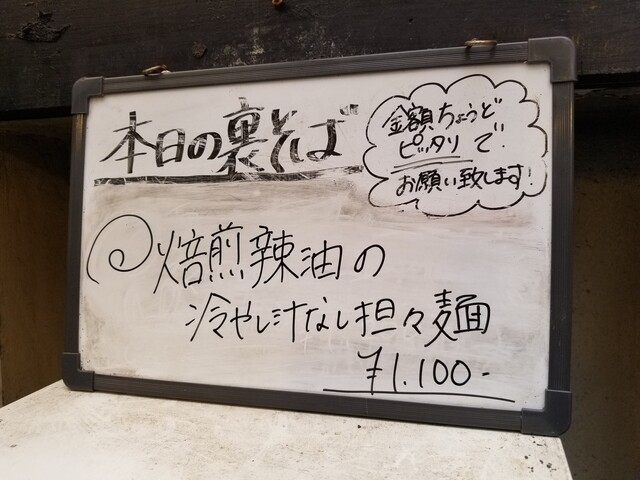 本日の裏そば
金額ちょうど
ピッタリで
お願い致します!
焙煎辣油の
冷やし汁なし担々麺
¥1,100-